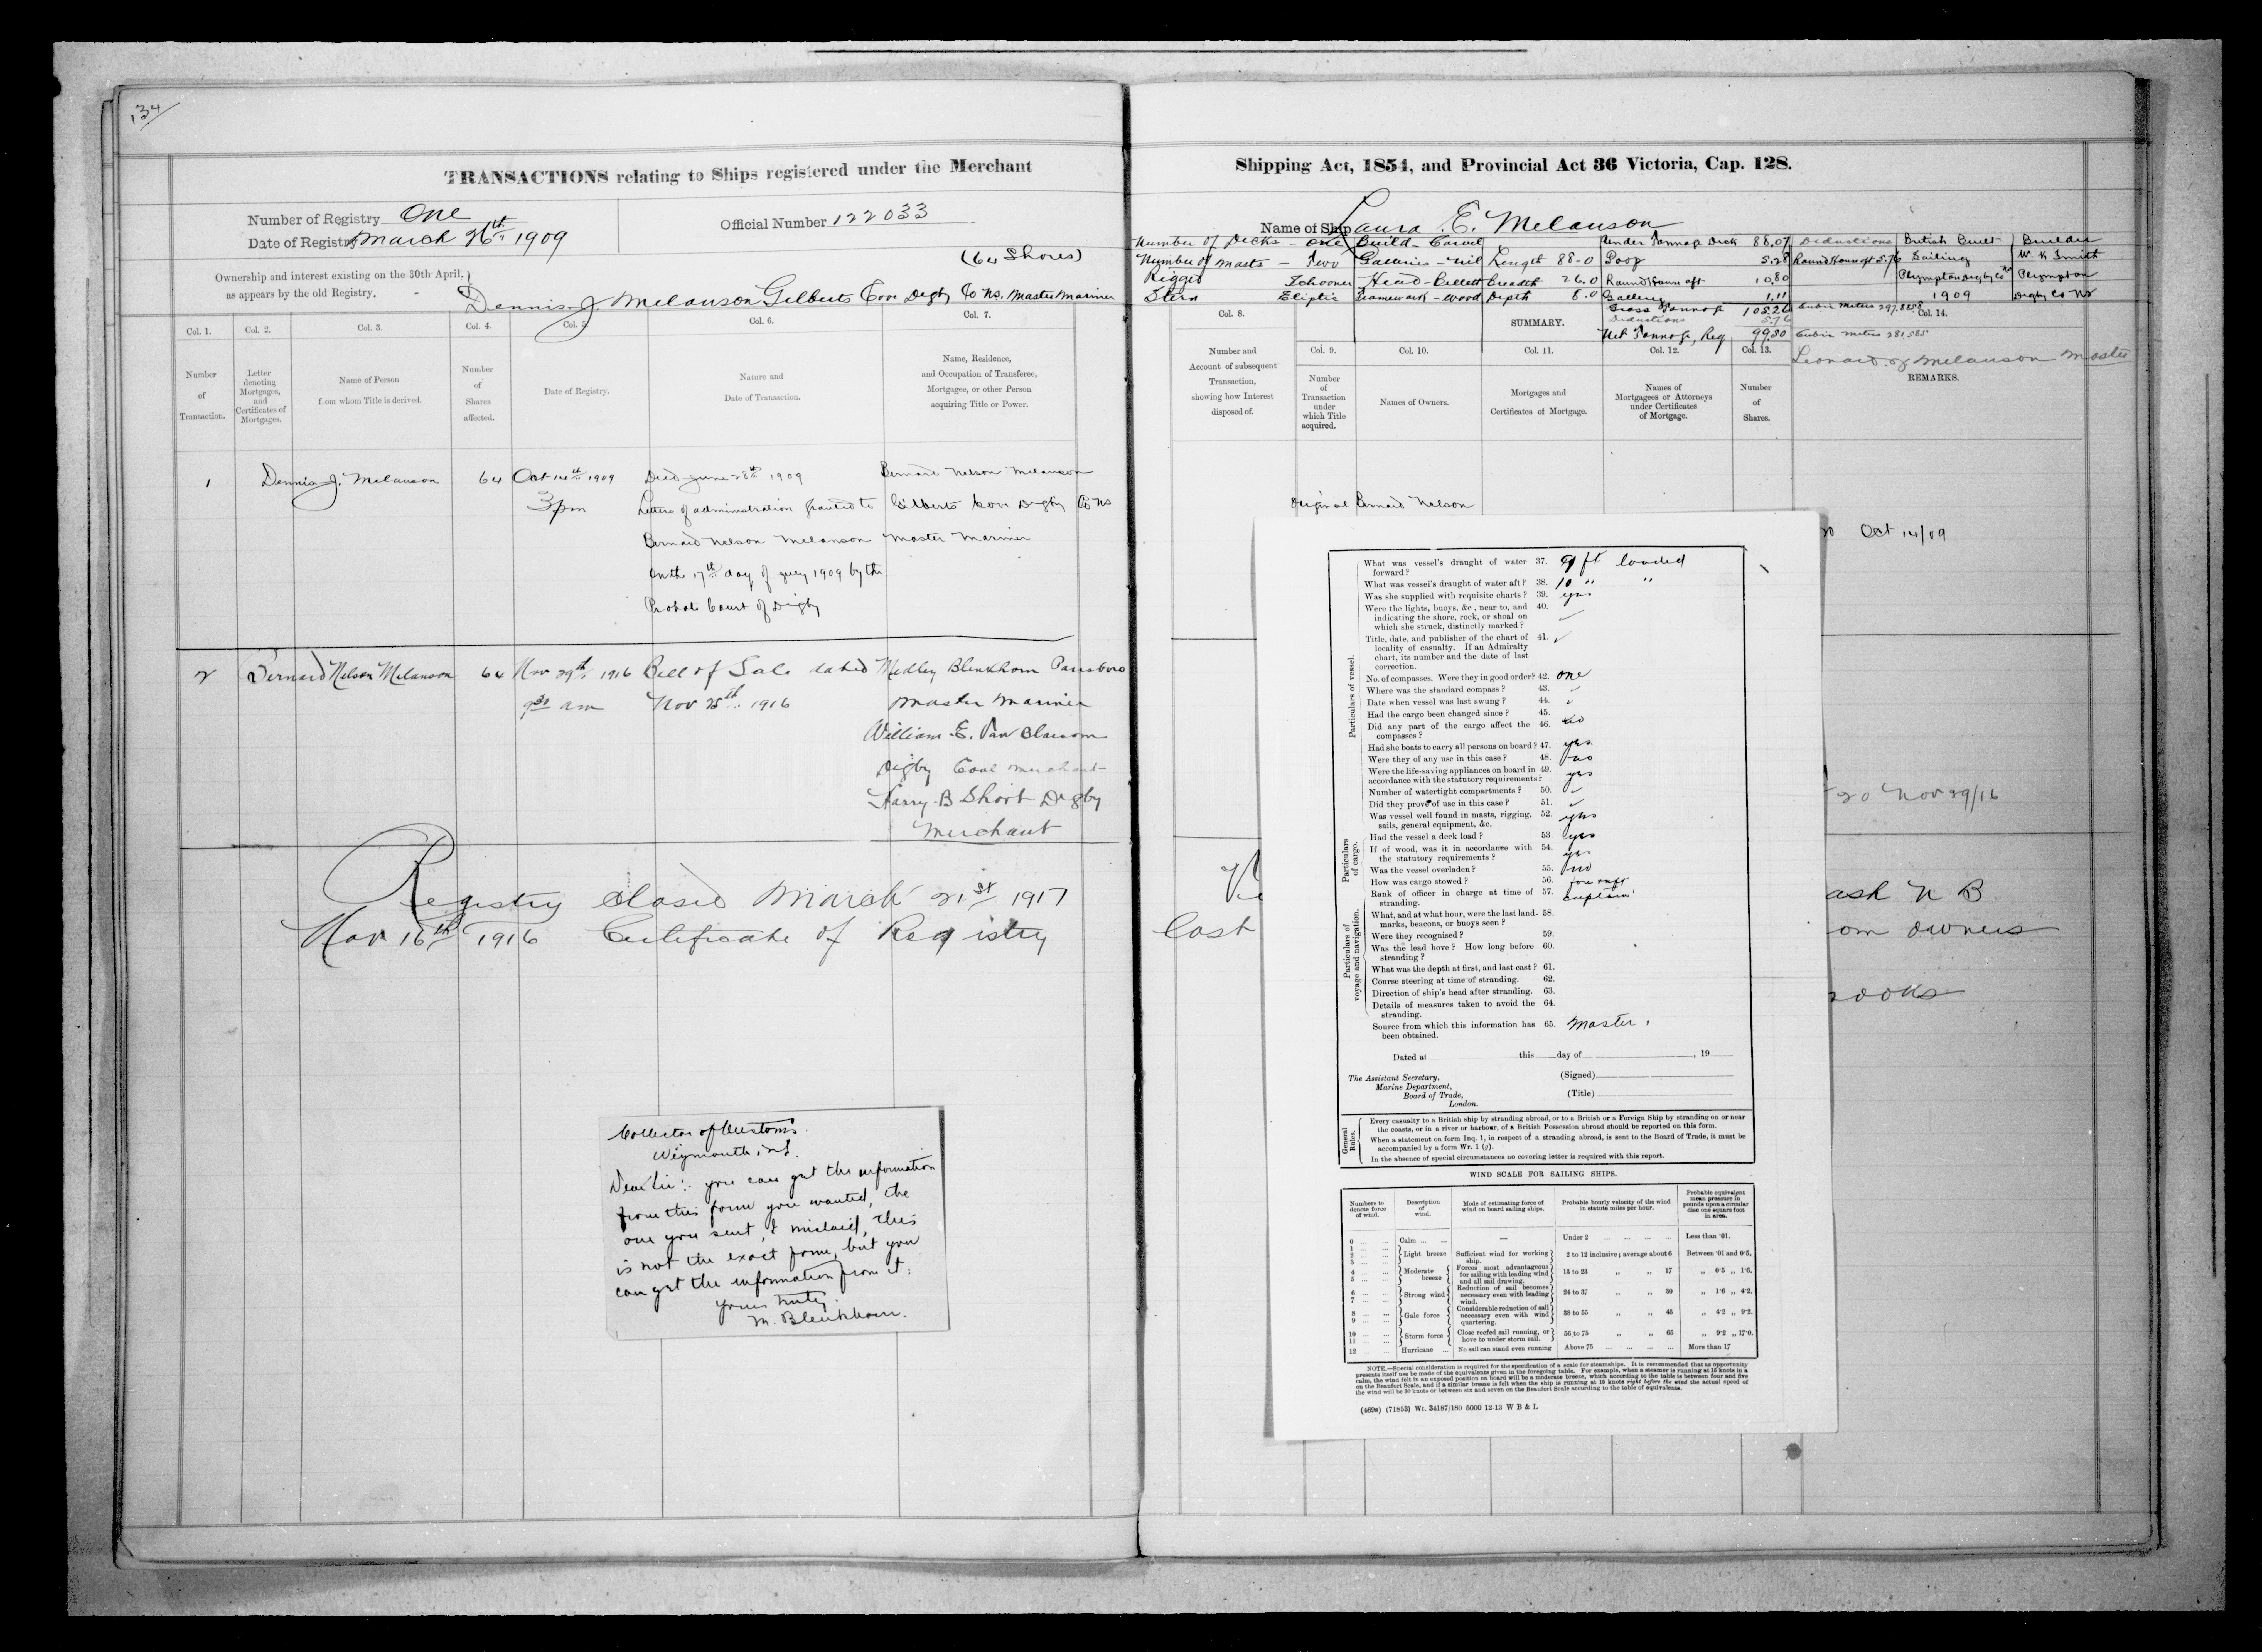 134
TRANSACTIONS relating to Ships registered under the Merchant
Number of Registry One
Official Number 122033
Date of Registry March 26th 1909
(64 Shares)
Ownership and interest existing on the 30th April,
as appears by the old Registry.
Dennis J. Melanson Gilberts Cove Digby Co NS. Master Mariner
Col. 1.
Col. 2.
Col. 3.
Col. 4.
Col. 5.
Col. 6.
Col. 7.
Number of Transaction.
Letter denoting Mortgages, and Certificates of Mortgages.
Name of Person from whom Title is derived.
Number of Shares affected.
Date of Registry.
Nature and Date of Transaction.
Name, Residence, and Occupation of Transferee, Mortgagee, or other Person acquiring Title or Power.
1 Dennis J. Melanson 64 Oct 14th 1909 Died June 28th 1909 Bernard Nelson Melanson
3 pm Letters of administration granted to Gilberts Cove Digby Co NS
Bernard Nelson Melanson Master Mariner
on the 17th day of July 1909 by the
Probate Court of Digby
2 Bernard Nelson Melanson 64 Nov 29th 1916 Bill of Sale dated Medley Blenkhorn Parrsboro
9 30 am Nov 25th 1916 Master Mariner
William E. Van Blarcom
Digby Coal merchant
Harry B Short Digby
Merchant
Registry Closed March 21st 1917
Nov 16th 1916 Certificate of Registry
Collector of Customs.
Weymouth, N.S.
Dear Sir: you can get the information
from this form you wanted, the
one you sent, I mislaid, this
is not the exact form, but you
can get the information from it.
yours truly.
M. Blenkhorn.
Shipping Act, 1854, and Provincial Act 36 Victoria, Cap. 128.
Name of Ship Laura E. Melanson
Number of Decks - one Build - Carvel Under Tonnage Deck 88.07 Deductions British Built Builder
Number of Masts - Two Galleries - nil Length 88-0 Poop 5.28 Round House aft 5.76 Sailing W. K Smith
Rigged Schooner Head - Billett Breadth 26.0 Round House aft 10.80 Plympton Digby Co NS Plympton
Stern Eliptic Framework - wood Depth 8.0 Gallery 1.11 1909 Digby Co NS
Gross Tonnage 105.26
Deductions 5.76
Net Tonnage, Reg 99.50
Leonard J Melanson Master
Col. 8.
SUMMARY.
Col. 14.
Col. 9.
Col. 10.
Col. 11.
Col. 12.
Col. 13.
Number and Account of subsequent Transaction, showing how Interest disposed of.
Number of Transaction under which Title acquired.
Names of Owners.
Mortgages and Certificates of Mortgage.
Names of Mortgagees or Attorneys under Certificates of Mortgage.
Number of Shares.
REMARKS.
Original Bernard Nelson
Oct 14/09
20 Nov 29/16
ask N B
Lost
om owners
ooks
Particulars of vessel.
What was vessel's draught of water forward? 37. 9 ft loaded
What was vessel's draught of water aft? 38. 10 " "
Was she supplied with requisite charts? 39. yes
Were the lights, buoys, &c., near to, and indicating the shore, rock, or shoal on which she struck, distinctly marked? 40.
Title, date, and publisher of the chart of locality of casualty. If an Admiralty chart, its number and the date of last correction. 41.
No. of compasses. Were they in good order? 42. one
Where was the standard compass? 43.
Date when vessel was last swung? 44.
Had the cargo been changed since? 45.
Did any part of the cargo affect the compasses? 46. no
Had she boats to carry all persons on board? 47. yes.
Were they of any use in this case? 48. no
Were the life-saving appliances on board in accordance with the statutory requirements? 49. yes
Number of watertight compartments? 50.
Did they prove of use in this case? 51.
Was vessel well found in masts, rigging, sails, general equipment, &c. 52. yes
Particulars of cargo.
Had the vessel a deck load? 53 yes
If of wood, was it in accordance with the statutory requirements? 54. yes
Was the vessel overladen? 55. no
How was cargo stowed? 56.
Particulars of voyage and navigation.
Rank of officer in charge at time of stranding. 57. captain
What, and at what hour, were the last landmarks, beacons, or buoys seen? 58.
Were they recognised? 59.
Was the lead hove? How long before stranding? 60.
What was the depth at first, and last cast? 61.
Course steering at time of stranding. 62.
Direction of ship's head after stranding. 63.
Details of measures taken to avoid the stranding. 64.
Source from which this information has been obtained. 65. Master.
Dated at this day of , 19
The Assistant Secretary,
Marine Department,
Board of Trade,
London.
(Signed)
(Title)
General Rules.
Every casualty to a British ship by stranding abroad, or to a British or a Foreign Ship by stranding on or near the coasts, or in a river or harbour, of a British Possession abroad should be reported on this form.
When a statement on form Inq. 1, in respect of a stranding abroad, is sent to the Board of Trade, it must be accompanied by a form Wr. 1 (g).
In the absence of special circumstances no covering letter is required with this report.
WIND SCALE FOR SAILING SHIPS.
Numbers to denote force of wind.
Description of wind.
Mode of estimating force of wind on board sailing ships.
Probable hourly velocity of the wind in statute miles per hour.
Probable equivalent mean pressure in pounds upon a circular disc one square foot in area.
0 Calm — Under 2 Less than ·01.
1 2 3 Light breeze Sufficient wind for working ship. 2 to 12 inclusive; average about 6 Between ·01 and 0·5.
4 5 Moderate breeze Forces most advantageous for sailing with leading wind and all sail drawing. 13 to 23 " " 17 " 0·5 " 1·6.
6 7 Strong wind Reduction of sail becomes necessary even with leading wind. 24 to 37 " " 30 " 1·6 " 4·2.
8 9 Gale force Considerable reduction of sail necessary even with wind quartering. 38 to 55 " " 45 " 4·2 " 9·2.
10 11 Storm force Close reefed sail running, or hove to under storm sail. 56 to 75 " " 65 " 9·2 " 17·0.
12 Hurricane No sail can stand even running Above 75 More than 17
NOTE.—Special consideration is required for the specification of a scale for steamships. It is recommended that as opportunity presents itself use be made of the equivalents given in the foregoing table. For example, when a steamer is running at 15 knots in a calm, the wind felt in an exposed position on board will be a moderate breeze, which according to the table is between four and five on the Beaufort Scale, and if a similar breeze is felt when the ship is running at 15 knots right before the wind the actual speed of the wind will be 30 knots or between six and seven on the Beaufort Scale according to the table of equivalents.
(469a) (71853) Wt. 34187/180 5000 12-13 W B & L